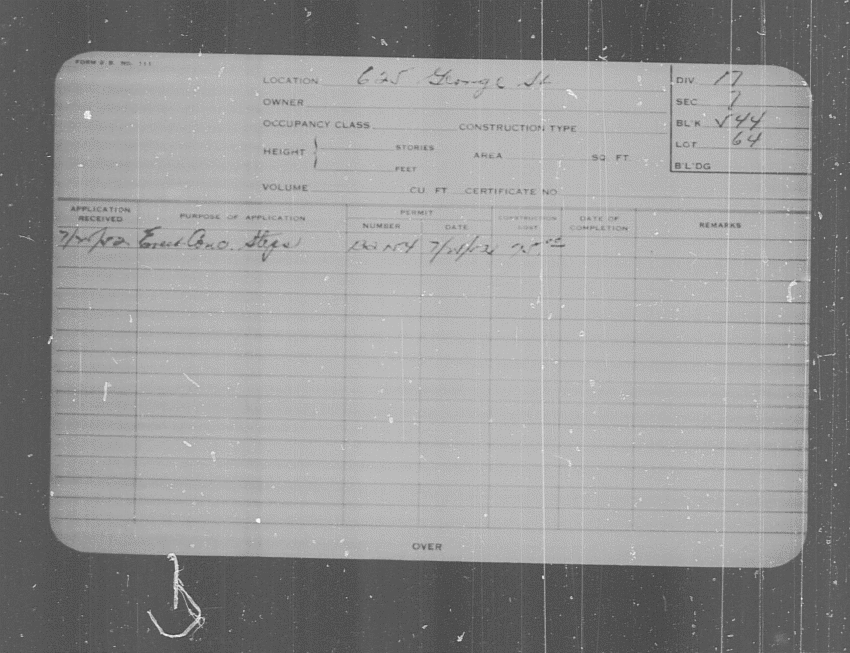 FORM S B. NO. 111
LOCATION 625 George St
DIV. 17
OWNER
SEC 7
OCCUPANCY CLASS CONSTRUCTION TYPE
BL'K V44
HEIGHT STORIES AREA SQ. FT
FEET
LOT 64
B'L'DG
VOLUME CU. FT CERTIFICATE NO
APPLICATION RECEIVED PURPOSE OF APPLICATION PERMIT NUMBER DATE CONSTRUCTION COST DATE OF COMPLETION REMARKS
Erect Conc. Steps
OVER